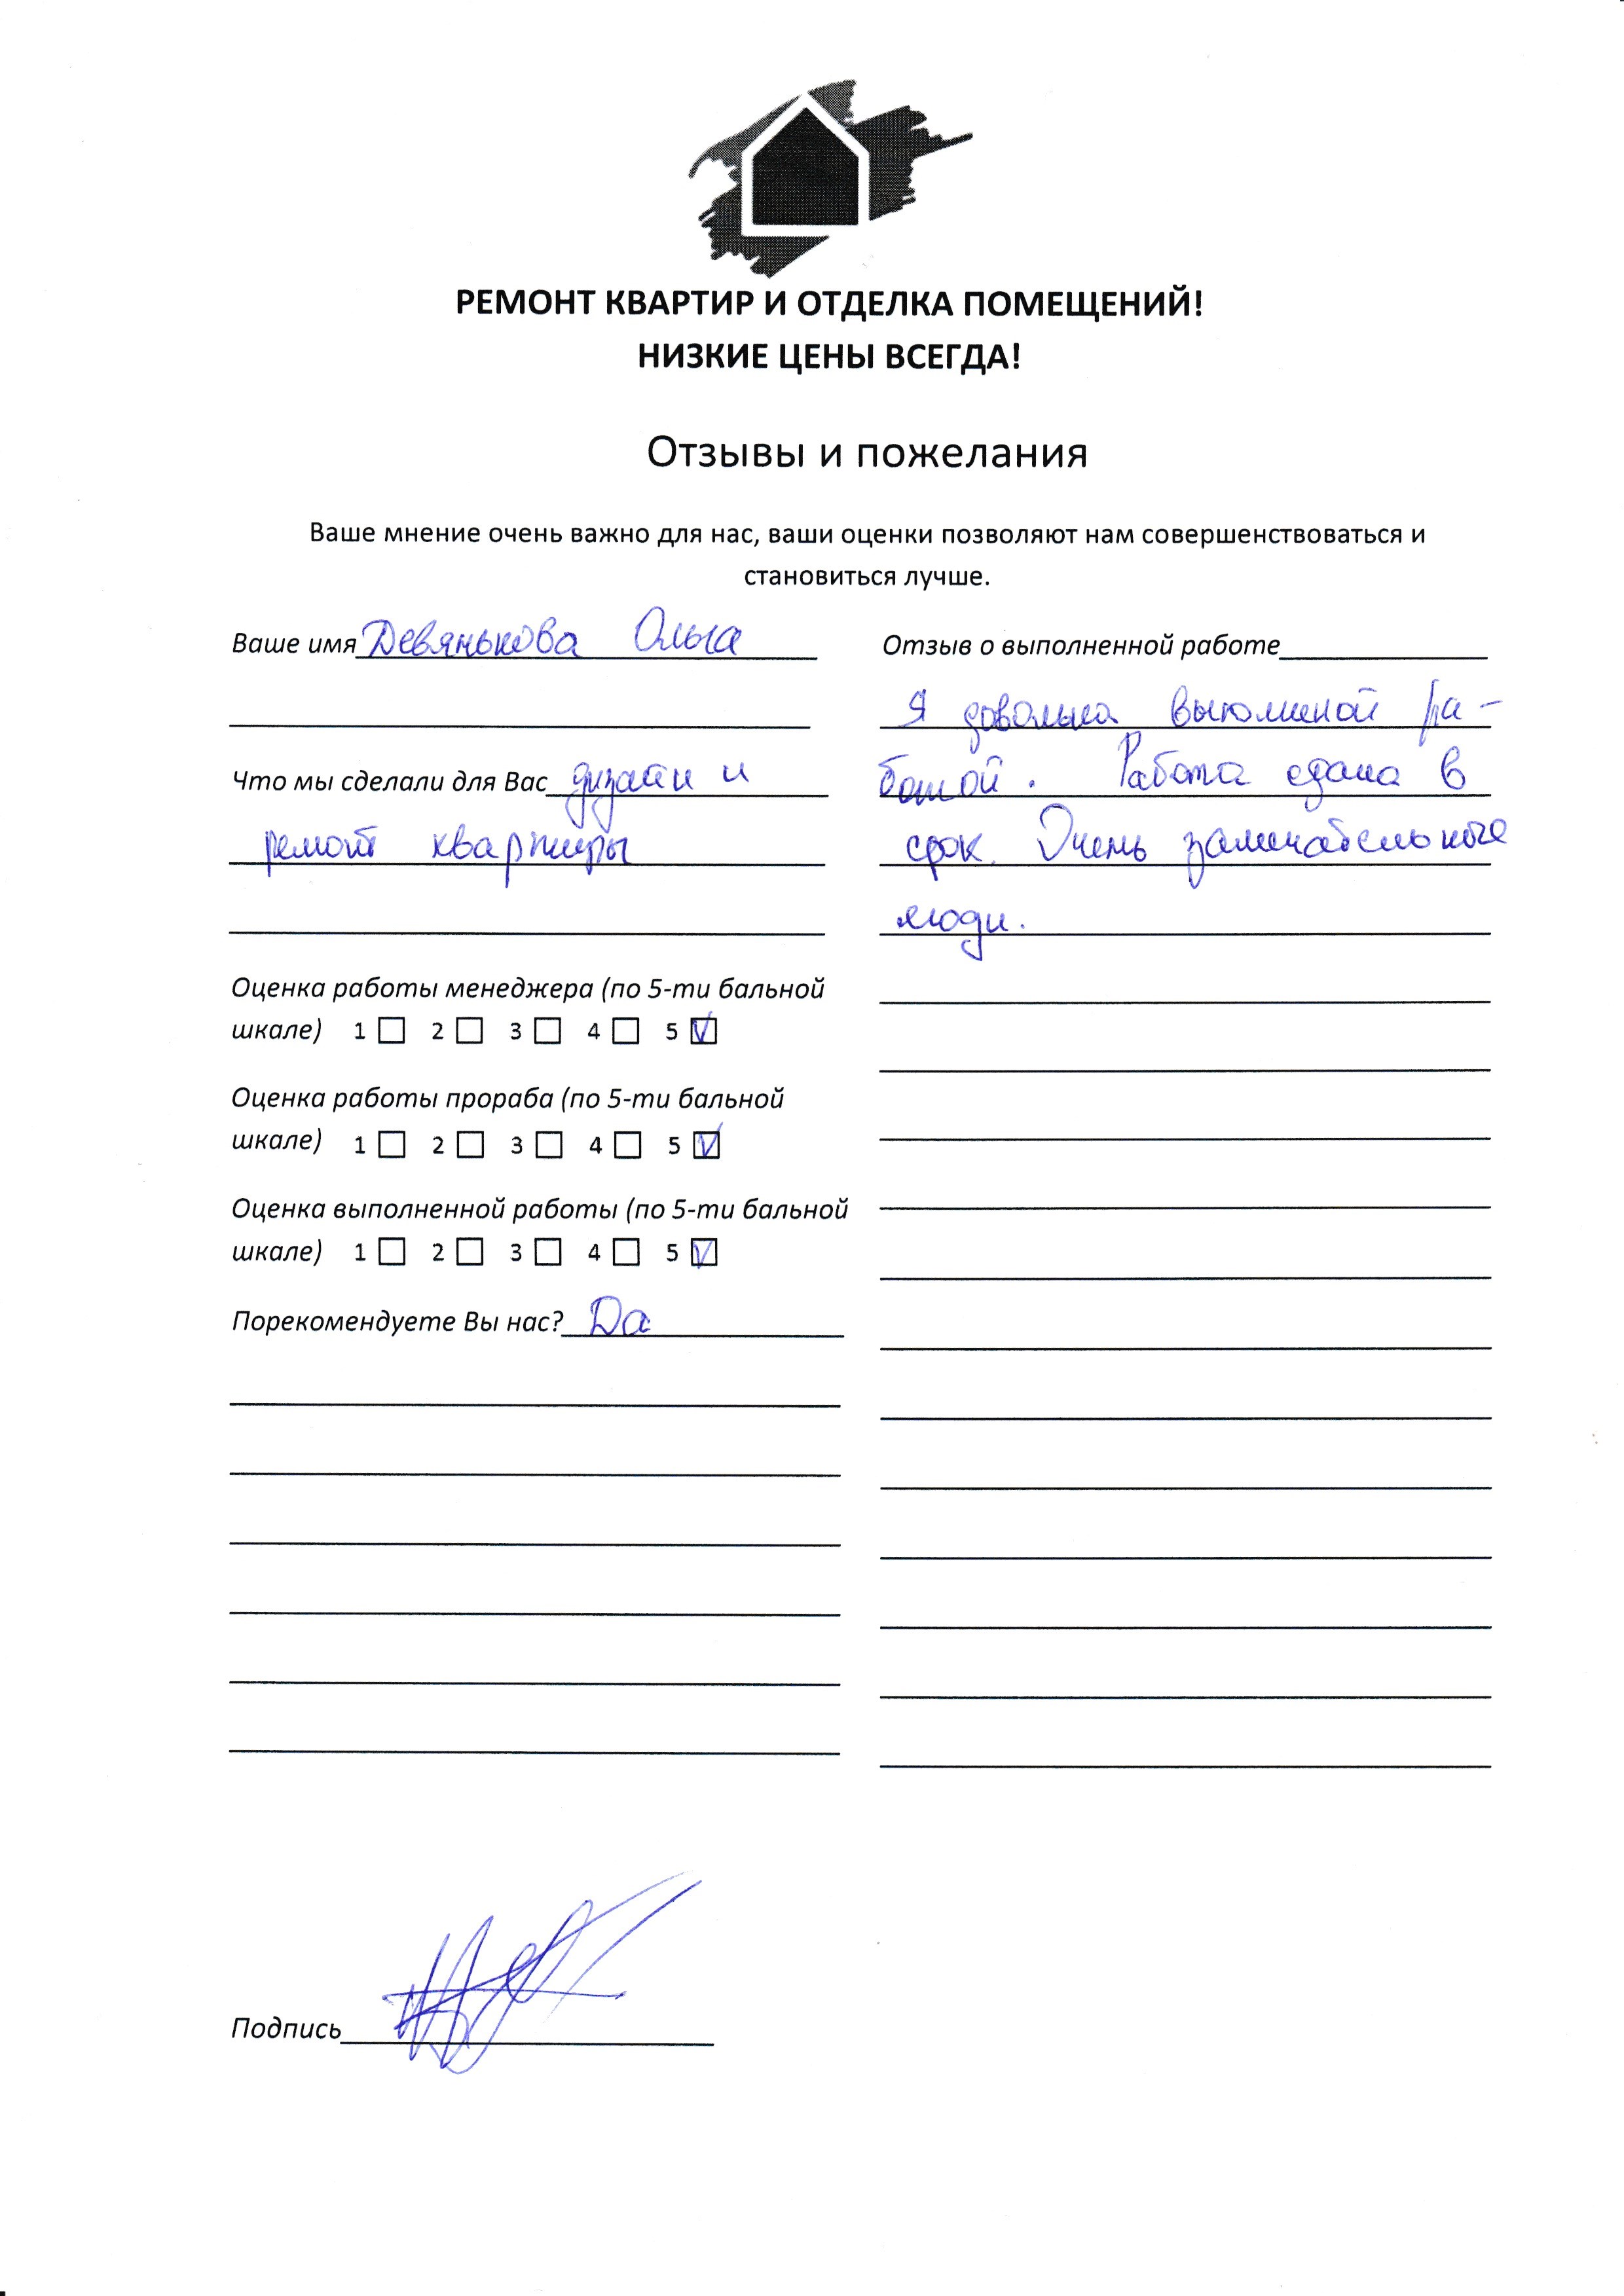 РЕМОНТ КВАРТИР И ОТДЕЛКА ПОМЕЩЕНИЙ!
НИЗКИЕ ЦЕНЫ ВСЕГДА!
Отзывы и пожелания
Ваше мнение очень важно для нас, ваши оценки позволяют нам совершенствоваться и
становиться лучше.
Ваше имя Девянькова Ольга
Что мы сделали для Вас дизайн и
ремонт квартиры
Оценка работы менеджера (по 5-ти бальной
шкале) 1 2 3 4 5
Оценка работы прораба (по 5-ти бальной
шкале) 1 2 3 4 5
Оценка выполненной работы (по 5-ти бальной
шкале) 1 2 3 4 5
Порекомендуете Вы нас? Да
Отзыв о выполненной работе
Я довольна выполненой ра-
ботой. Работа сдана в
срок. Очень замечательные
люди.
Подпись